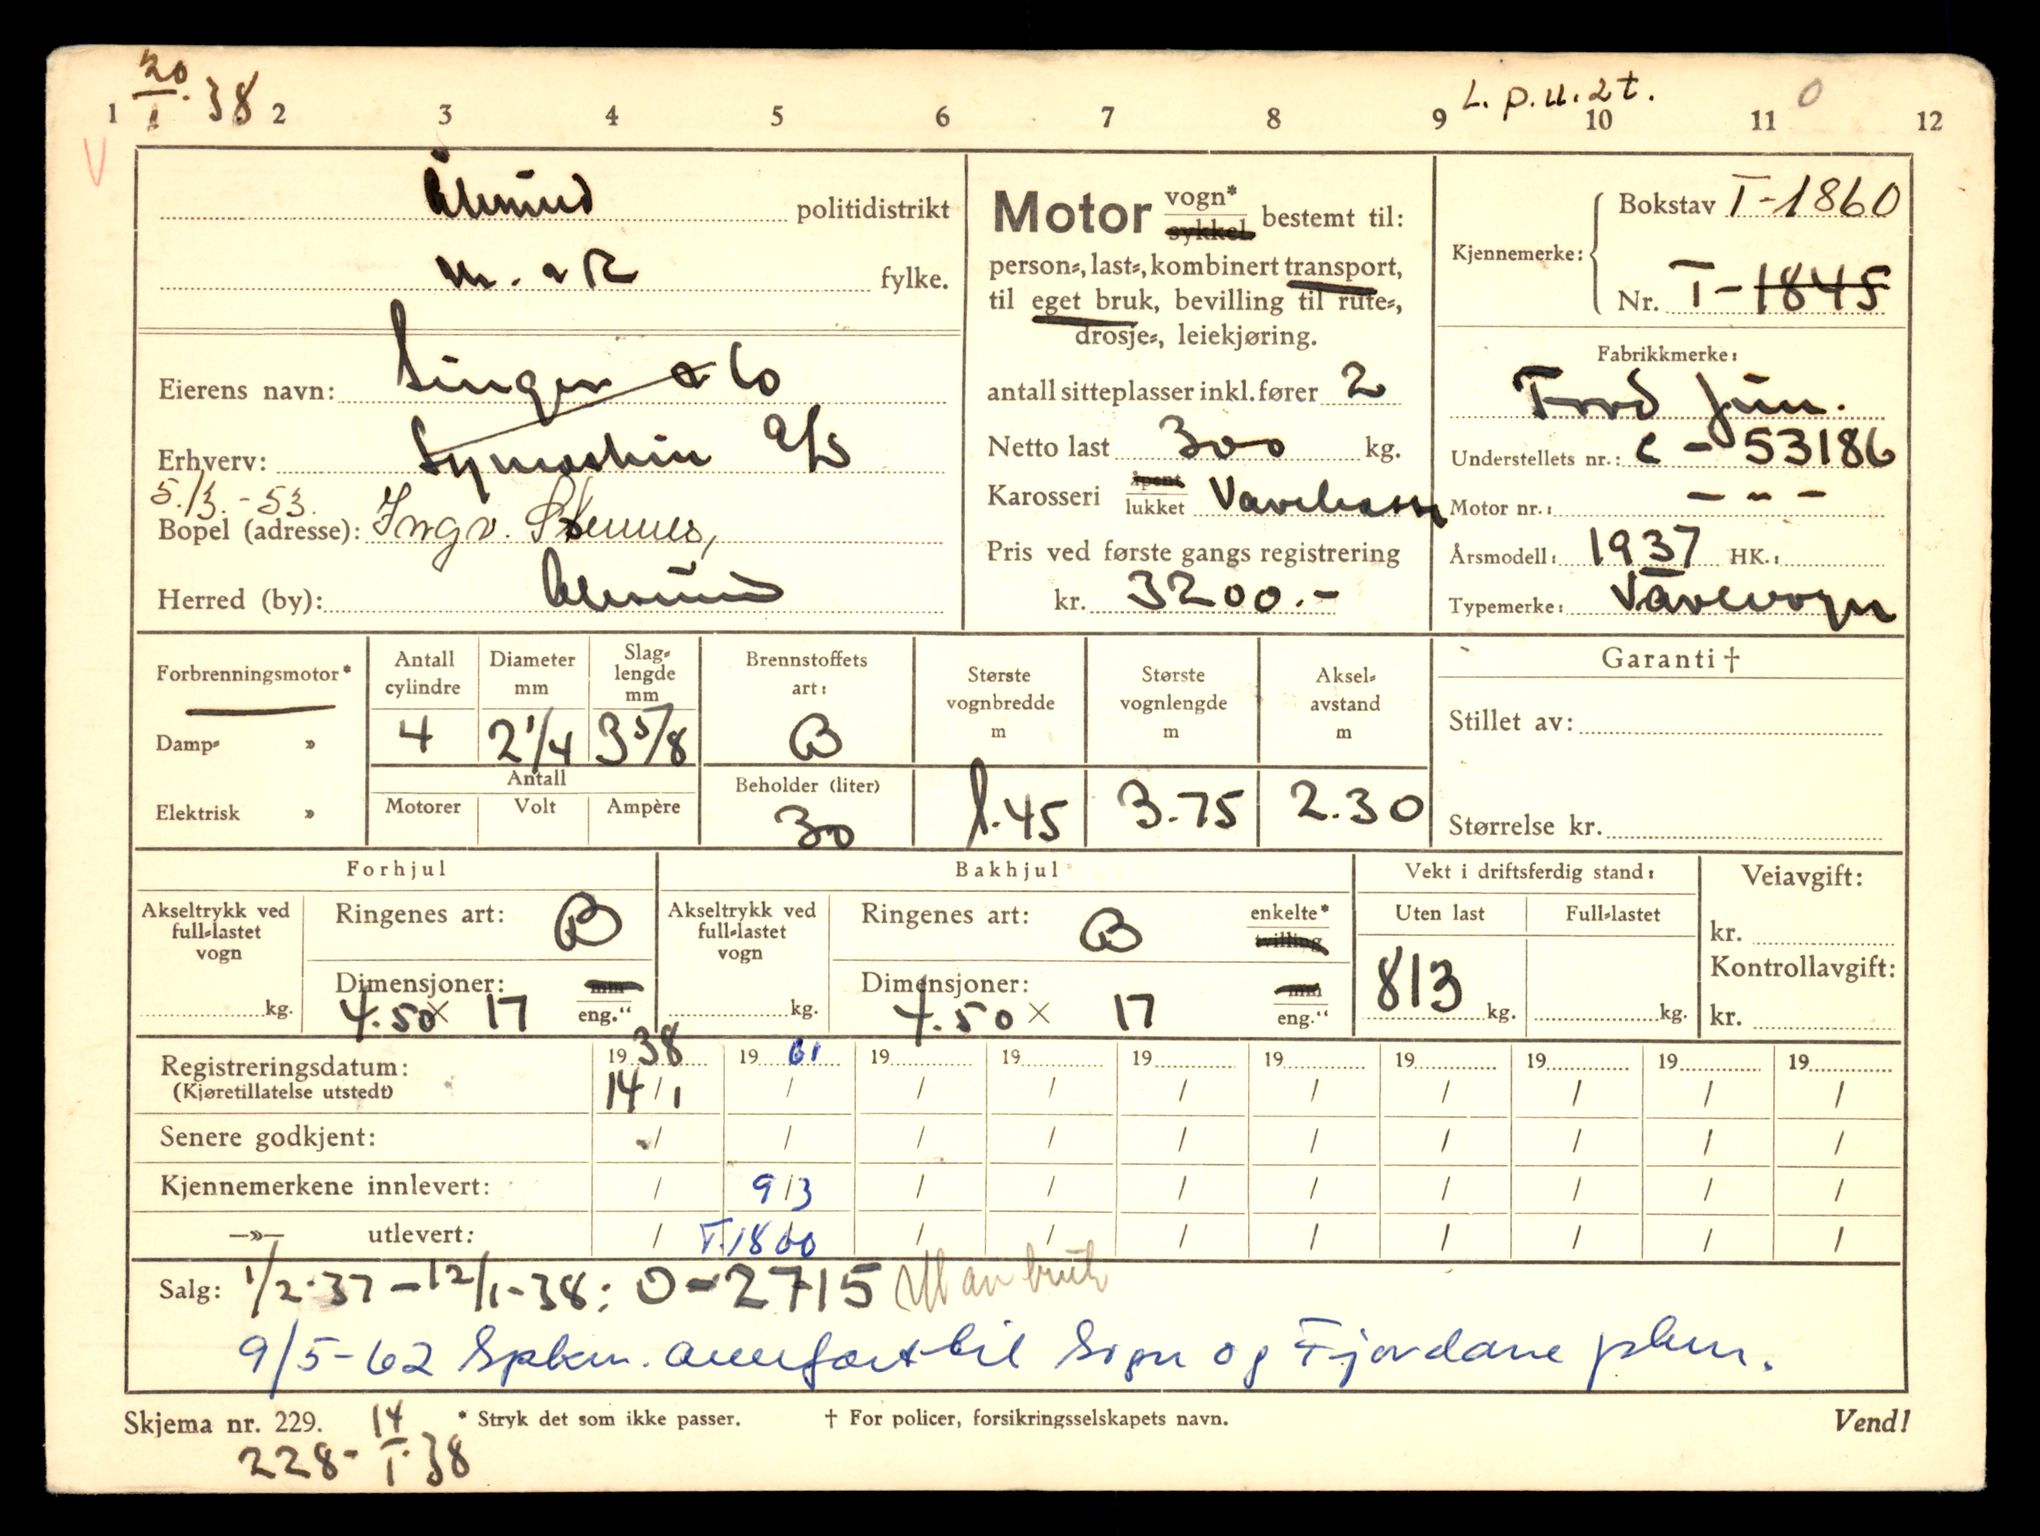 20/1. 38
L.p.u.2t.
0
1 2 3 4 5 6 7 8 9 10 11 12
V
Ålesund politidistrikt
M. o R fylke.
Eierens navn: Singer & Co
Erhverv: Symaskin A/S
5./3. - 53.
Bopel (adresse): Ingv. Stennes,
Herred (by): Ålesund
Motor vogn* sykkel bestemt til:
person-, last-, kombinert transport,
til eget bruk, bevilling til rute-,
drosje-, leiekjøring.
antall sitteplasser inkl. fører 2
Netto last 300 kg.
Karosseri åpent lukket Varekasse
Pris ved første gangs registrering
kr. 3200.-
Kjennemerke: Bokstav T-1860
Nr. T-1845
Fabrikkmerke:
Ford Jun.
Understellets nr.: C - 53186
Motor nr.: - " -
Årsmodell: 1937 HK.:
Typemerke: Varevogn
Forbrenningsmotor*
Damp- »
Elektrisk »
Antall cylindre 4
Diameter mm 2 1/4
Slaglengde mm 3 5/8
Antall
Motorer Volt Ampère
Brennstoffets art: B
Beholder (liter) 30
Største vognbredde m 1.45
Største vognlengde m 3.75
Akselavstand m 2.30
Garanti †
Stillet av:
Størrelse kr.
Forhjul
Akseltrykk ved full-lastet vogn
kg.
Ringenes art: B
Dimensjoner: mm
4.50 × 17 eng."
Bakhjul
Akseltrykk ved full-lastet vogn
kg.
Ringenes art: B enkelte* tvilling
Dimensjoner: mm
4.50 × 17 eng."
Vekt i driftsferdig stand:
Uten last Full-lastet
813 kg. kg.
Veiavgift:
kr.
Kontrollavgift:
kr.
Registreringsdatum: 1938 1961 19 19 19 19 19 19 19 19
(Kjøretillatelse utstedt) 14/1 / / / / / / / / /
Senere godkjent: / / / / / / / / / /
Kjennemerkene innlevert: / 9/3 / / / / / / / /
—»— utlevert: / T.1860 / / / / / / / /
Salg: 1/2-37 - 12/1-38: D-2715 Ut av bruk
9/5-62 Spkm. overført til Sogn og Fjordane pkm.
Skjema nr. 229. * Stryk det som ikke passer. † For policer, forsikringsselskapets navn. Vend!
228- 14/1-38